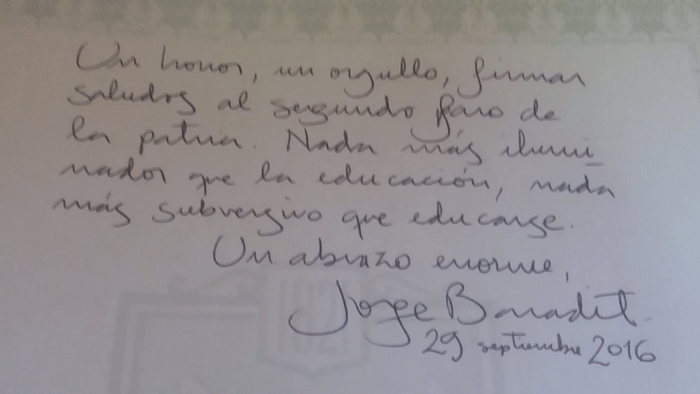 Un honor, un orgullo, firmar
saludos al segundo faro de
la patria. Nada más ilumi_
nador que la educación, nada
más subversivo que educarse.
Un abrazo enorme,
Jorge Baradit.
29 septiembre 2016